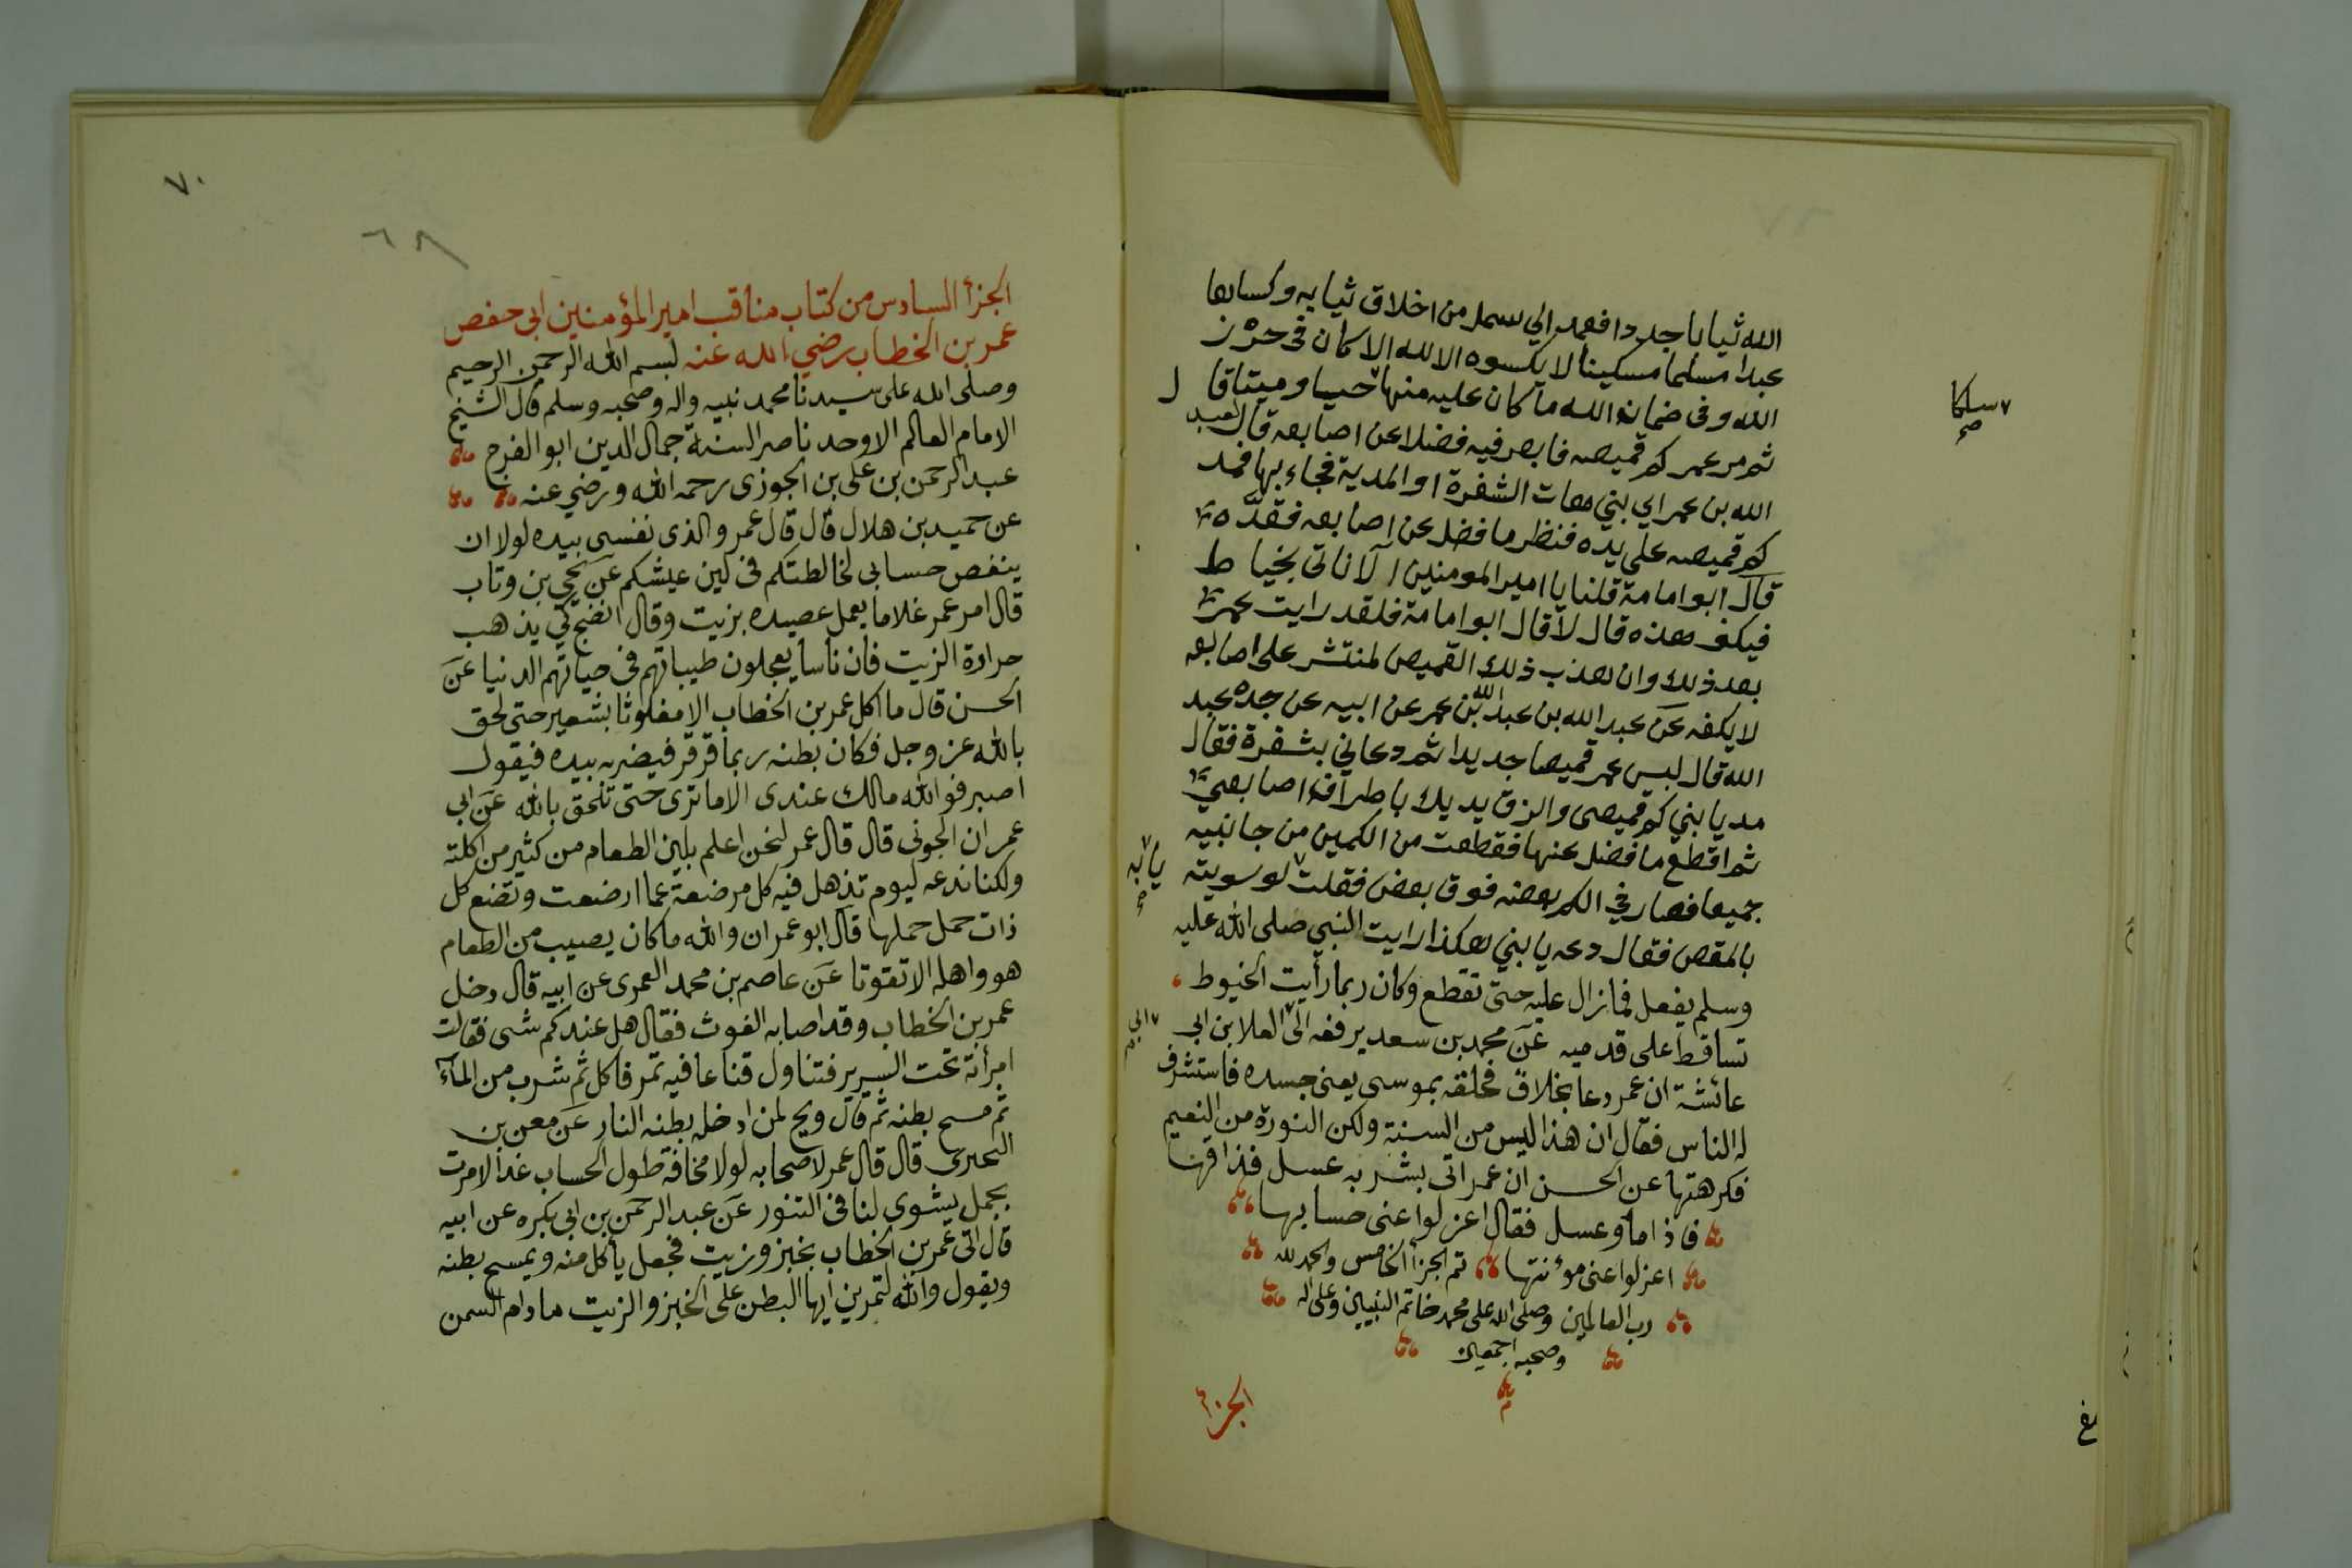 الله ثيابا جددا فعمد الي سمل من اخلاق ثيابه وكساها
عبدا مسلما مسكينا لا يكسوه الا لله الا كان فى حرز
الله وفى ضمان الله ما كان عليه منها حيا وميتا قال
سلكا
صح
ثم مر عمر كم قميصه فابصر فيه فضلا عن اصابعه قال لعبد
الله بن عمر اي بني هات الشفرة او المدية فجاء بها فمد
كم قميصه على يده فنظر ما فضل عن اصابعه فقده
قال ابو امامة قلنا يا امير المومنين الا ناتى بخياط
فيكف هذه قال لا قال ابو امامة فلقد رايت عمر
بعد ذلك وان هذب ذلك القميص لمنتشر على اصابعه
لا يكفه عن عبد الله بن عبد الله بن عمر عن ابيه عن جده عبد
الله قال لبس عمر قميصا جديدا ثم دعاني بشفرة فقال
مد يا بني كم قميصى والزق يديك باطراف اصابعي
ثم اقطع ما فضل عنها فقطعت من الكمين من جانبيه
جميعا فصار في الكم بعضه فوق بعض فقلت لو سويته
يا ابه
صح
بالمقص فقال دعه يا بني هكذا رايت النبي صلى الله عليه
وسلم يفعل فما زال عليه حتى تقطع وكان ربما رأيت الخيوط
تساقط على قدميه عن محمد بن سعد يرفعه الى العلا بن ابى
عائشة ان عمر دعا بحلاق فحلقه بموسى يعنى جسده فاستشرف
له الناس فقال ان هذا ليس من السنة ولكن النورة من النعيم
فكرهتها عن الحسن ان عمر اتى بشربه عسل فذاقها
فاذا ماء وعسل فقال اعزلوا عنى حسابها
اعزلوا عنى موءنتها تم الجزأ الخامس والحمد لله
رب العالمين وصلى الله على محمد خاتم النبيين وعلى اله
وصحبه اجمعين
الجزأ
٧٠
٦٨
الجزأ السادس من كتاب مناقب امير المؤمنين ابى حفص
عمر بن الخطاب رضي الله عنه بسم الله الرحمن الرحيم
وصلى الله على سيدنا محمد نبيه واله وصحبه وسلم قال الشيخ
الامام العالم الاوحد ناصر السنة جمال الدين ابو الفرج
عبد الرحمن بن على بن الجوزى رحمه الله ورضي عنه
عن حميد بن هلال قال قال عمر والذى نفسى بيده لولا ان
ينقص حسابى لخالطتكم فى لين عيشكم عن يحي بن وتاب
قال امر عمر غلاما يعمل عصيده بزيت وقال انضج كي يذهب
حرارة الزيت فان ناسا يعجلون طيباتهم فى حياتهم الدنيا عن
الحسن قال ما اكل عمر بن الخطاب الا مغلوثا بشعير حتى لحق
بالله عز وجل فكان بطنه ربما قرقر فيضربه بيده فيقول
اصبر فوالله مالك عندى الا ما ترى حتى تلحق بالله عن ابى
عمران الجونى قال قال عمر لنحن اعلم بلين الطعام من كثير من اكلته
ولكنا ندعه ليوم تذهل فيه كل مرضعة عما ارضعت وتضع كل
ذات حمل حملها قال ابو عمران والله ما كان يصيب من الطعام
هو واهله الا تقوتا عن عاصم بن محمد العمرى عن ابيه قال دخل
عمر بن الخطاب وقد اصابه الغوث فقال هل عندكم شى فقالت
امرأته تحت السرير فتناول قناعا فيه تمر فاكل ثم شرب من الماء
ثم مسح بطنه ثم قال ويح لمن ادخله بطنه النار عن معن بن
البحترى قال قال عمر لاصحابه لولا مخافة طول الحساب غدا لامرت
بجمل يشوى لنا فى التنور عن عبد الرحمن بن ابى بكره عن ابيه
قال اتى عمر بن الخطاب بخبز وزيت فجعل يأكل منه ويمسح بطنه
ويقول والله لتمرنن ايها البطن على الخبز والزيت ما دام السمن